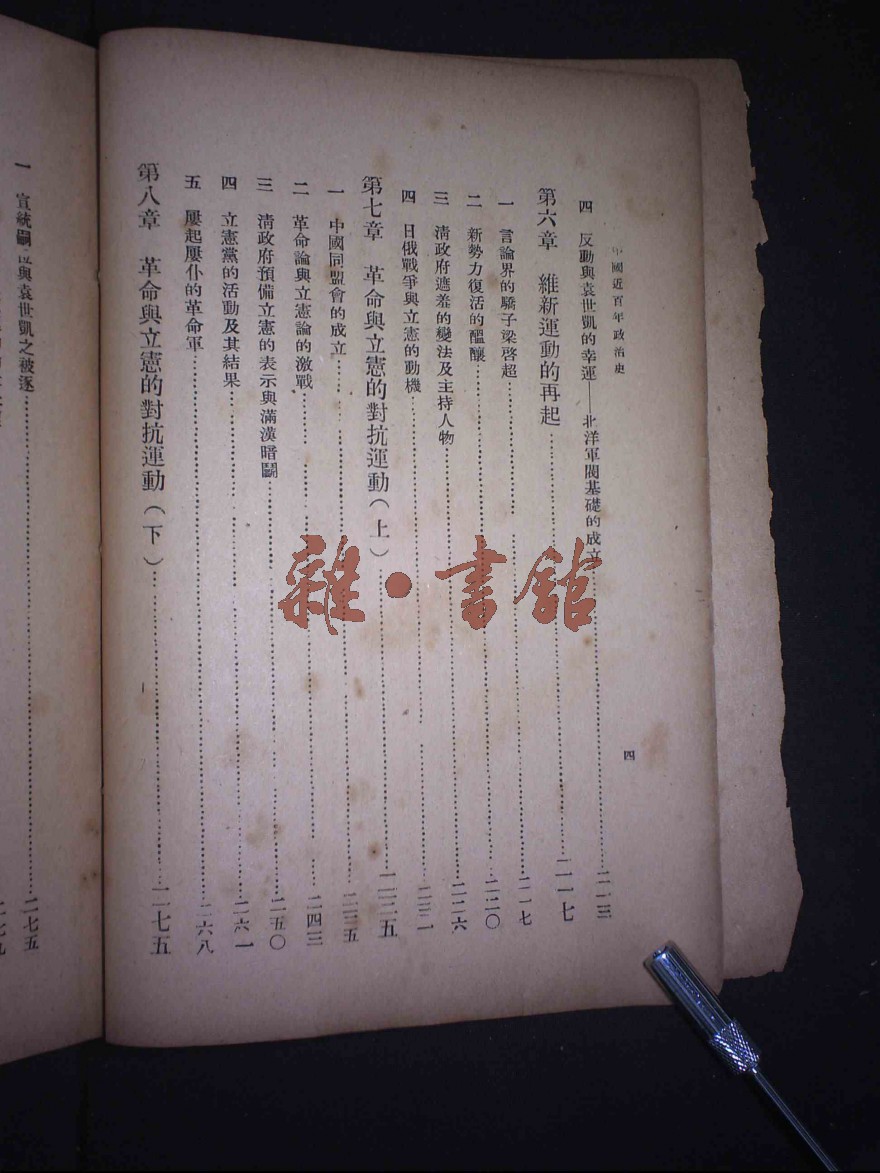 中國近百年政治史
四
四 反動與袁世凱的幸運——北洋軍閥基礎的成立……二一三
第六章 維新運動的再起……二一七
一 言論界的驕子梁啓超……二一七
二 新勢力復活的醞釀……二二〇
三 淸政府遮羞的變法及主持人物……二二六
四 日俄戰爭與立憲的動機……二三二
第七章 革命與立憲的對抗運動(上)……二三五
一 中國同盟會的成立……二三五
二 革命論與立憲論的激戰……二四三
三 淸政府預備立憲的表示與滿漢暗鬭……二五〇
四 立憲黨的活動及其結果……二六一
五 屢起屢仆的革命軍……二六八
第八章 革命與立憲的對抗運動(下)……二七五
一 宣統嗣位與袁世凱之被逐……二七五
雜·書館